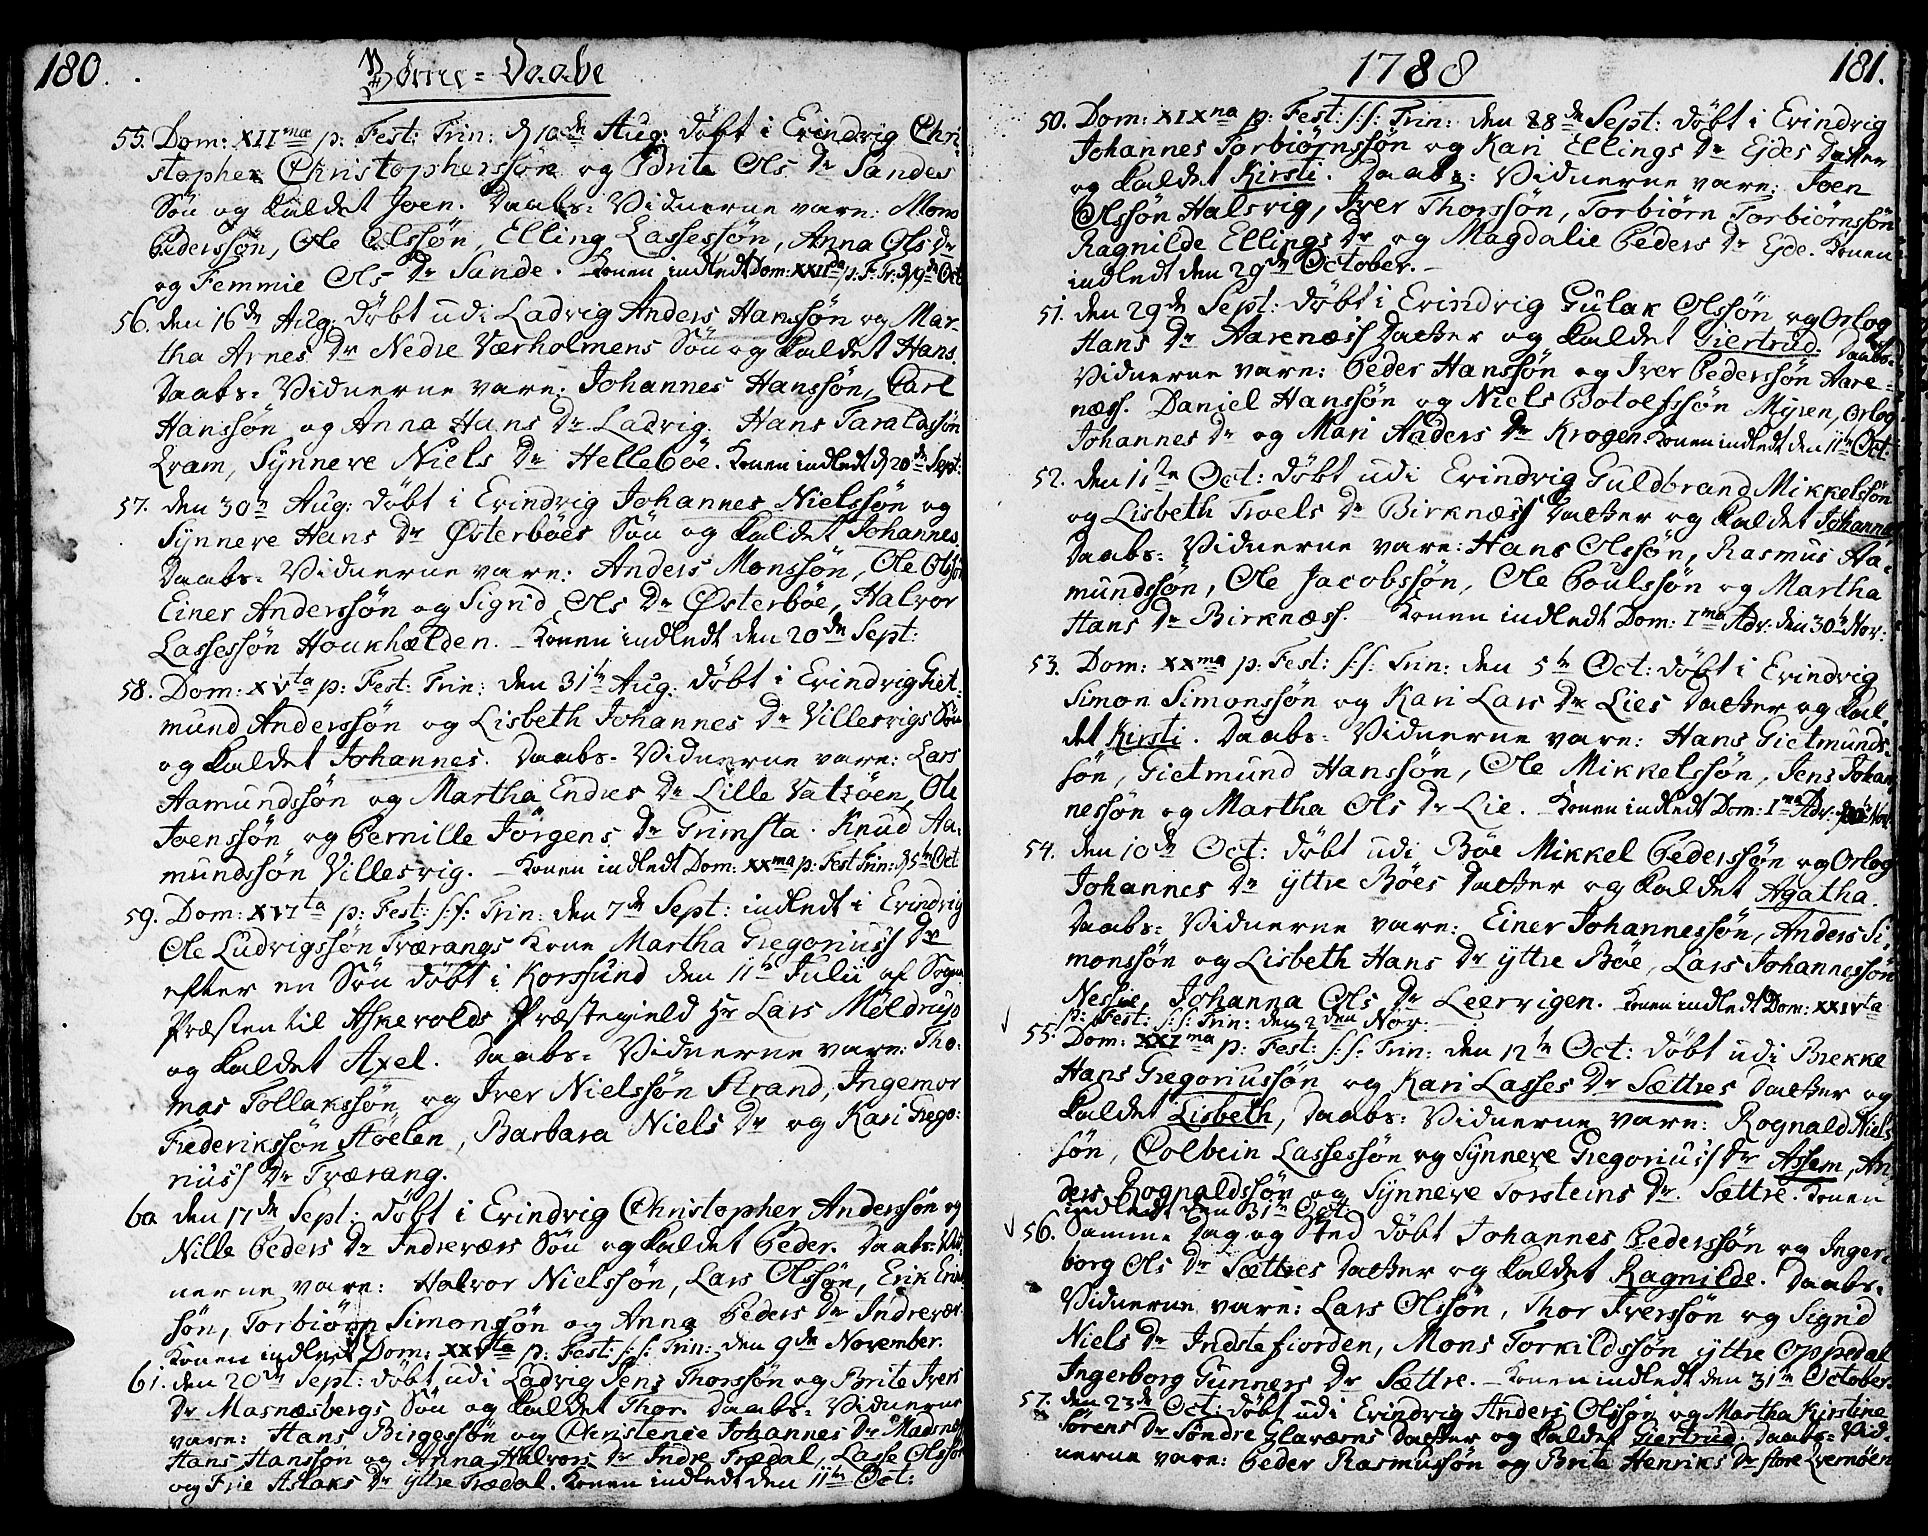 180.
Børne-Daabe
55. Dom: XIIma p: Fest: Trin: d 10de Aug: døbt i Evindvig Chri-
stopher Christopherssøn og Brite Ols Dr Sandes
Søn og kaldet Joen. Daabs-Vidnerne vare: Mons
Pederssøn, Ole Olssøn, Elling Lassessøn, Anna Ols Dr
og Femmie Ols Dr Sande. Konen indledt Dom: p: F: Tr: d 19de Oct
56. den 16de Aug: døbt udi Ladvig Anders Hanssøn og Mar-
tha Arnes Dr Nedre Værholmens Søn og kaldet Hans.
Daabs-Vidnerne vare: Johannes Hanssøn, Carl
Hanssøn og Anna Hans Dr Ladvig. Hans Taraldssøn
Qvam, Synneve Niels Dr Hellebøe. Konen indledt d 20de Sept:
57. den 30te Aug: døbt i Evindvig Johannes Nielssøn og
Synneve Hans Dr Østerbøes Søn og kaldet Johannes.
Daabs-Vidnerne vare: Anders Monssøn, Ole Olssøn
Einer Anderssøn og Sigrid Ols Dr Østerbøe, Halvor
Lassessøn Houkhælden. - Konen indledt den 20de Sept:
58. Dom: XVta p: Fest: Trin: den 31te Aug: døbt i Evindvig Giet-
mund Anderssøn og Lisbeth Johannes Dr Villesvigs Søn
og kaldet Johannes. Daabs-Vidnerne vare: Lars
Aamundssøn og Martha Endres Dr Lille Vatsøen, Ole
Joenssøn og Pernille Jørgens Dr Grimsta. Knud Aa-
mundssøn Villesvig. - Konen indledt Dom: XXma p: Fest: Trin: d 5te Oct
59. Dom: XVIta p: Fest: s:s: Trin: den 7de Sept: indledt i Evindvig
Ole Ludvigssøn Træerangs Kone Martha Gregoriuss Dr
efter en Søn døbt i Korssund den 11te Julii af Sogne
Præsten til Askevolds Præstegield Hr Lars
og kaldet Axel. Daabs-Vidnerne vare: Tho-
mas Tollakssøn, og Iver Nielssøn Strand, Ingemor
Frederikssøn Støelen, Barbara Niels Dr og Kari Grego-
riuss Dr Træerang.
60. den 17de Sept: døbt i Evindvig Christopher Anderssøn og
Nille Peders Dr Indreværs Søn og kaldet Peder. Daabs-Vid-
nerne vare: Halvor Nielssøn, Lars Olssøn, Erik Erik-
søn, Torbiørn Simonssøn og Anna Peders Dr Indrevær.
Konen indledt Dom: XXVta p: Fest: s:s: Trin: den 9de November.
61. den 20de Sept: døbt udi Ladvig Jens Thorssøn og Brite Ivers
Dr Masnæsbergs Søn og kaldet Thor. Daabs-Vidnerne
vare: Hans Birgessøn og Christense Johannes Dr Masnæs
Hans Hanssøn og Anna Halvors Dr Indre Trædal, Lasse Olssøn
og Frie Aslaks Dr Yttre Trædal. Konen indledt den 11te Oct:
1788
181.
50. Dom: XIXna p: Fest: s:s: Trin: den 28de Sept: døbt i Evindvig
Johannes Torbiørnssøn og Kari Ellings Dr Ejdes Datter
og kaldet Kirsti. Daabs-Vidnerne vare: Joen
Olssøn Halsvig, Iver Thorssøn, Torbiørn Torbiørnssøn
Ragnilde Ellings Dr og Magdalie Peders Dr Ejde. Konen
indledt den 29de October. -
51. den 29de Sept: døbt i Evindvig Gulak Olssøn og Orlog
Hans Dr Aarenæss Datter og kaldet Giertrud. Daabs-
Vidnerne vare: Peder Hanssøn og Iver Pederssøn Aare-
næss. Daniel Hanssøn og Niels Botolfssøn Myren, Orlog
Johannes Dr og Mari Anders Dr Krogen. Konen indledt den 11te Oct:
52. den 11te Oct: døbt udi Evindvig Guldbrand Mikkelssøn
og Lisbeth Troels Dr Birknæss Datter og kaldet Johanna
Daabs-Vidnerne vare: Hans Olssøn, Rasmus Aa-
mundssøn, Ole Jacobssøn, Ole Poulssøn og Martha
Hans Dr Birknæss. - Konen indledt Dom: Ima Adv: den 30te Nov:
53. Dom: XXma p: Fest: s:s: Trin: den 5te Oct: døbt i Evindvig
Simon Simonssøn og Kari Lars Dr Lies Datter og kal-
det Kirsti. Daabs-Vidnerne vare: Hans Gietmunds-
søn, Gietmund Hanssøn, Ole Mikkelssøn, Jens Johan-
nessøn og Martha Ols Dr Lie. Konen indledt Dom: Ima Adv: d 30te Nov:
54. den 10de Oct: døbt udi Bøe Mikkel Pederssøn og Orlog
Johannes Dr yttre Bøes Datter og kaldet Agatha.
Daabs-Vidnerne vare: Einer Johannessøn, Anders Si-
monssøn og Lisbeth Hans Dr yttre Bøe, Lars Johannessøn
Nessie, Johanna Ols Dr Leervigen. Konen indledt Dom: XXIVta
p: Fest: s:s: Trin: den 2den Nov:
55. Dom: XXIma p: Fest: s:s: Trin: den 12te Oct: døbt udi Brekke
Hans Gregoriussøn og Kari Lasses Dr Sættres Datter og
kaldet Lisbeth, Daabs-Vidnerne vare: Rognald Niels-
søn, Colbein Lassessøn og Synneve Gregoriuss Dr Assem, An-
ders Rognaldssøn og Synneve Torsteins Dr Sættre. Konen
indledt den 31te Oct:
56. Samme Dag og Sted døbt Johannes Pederssøn og Inger-
borg Ols Dr Sættres Datter og kaldet Ragnilde. Daabs-
Vidnerne vare: Lars Olssøn, Thor Iverssøn og Sigrid
Niels Dr Indstefiorden, Mons Torkildssøn yttre Oppedal
Ingerborg Gunners Dr Sættre. - Konen indledt den 31te October.
57. den 23de Oct: døbt udi Evindvig Anders Olssøn og Martha Kirstine
Sørens Dr Søndre Glaværns Datter og kaldet Giertrud. Daabs-Vid-
nerne vare: Peder Rasmussøn og Brite Henriks Dr store Qvernøen